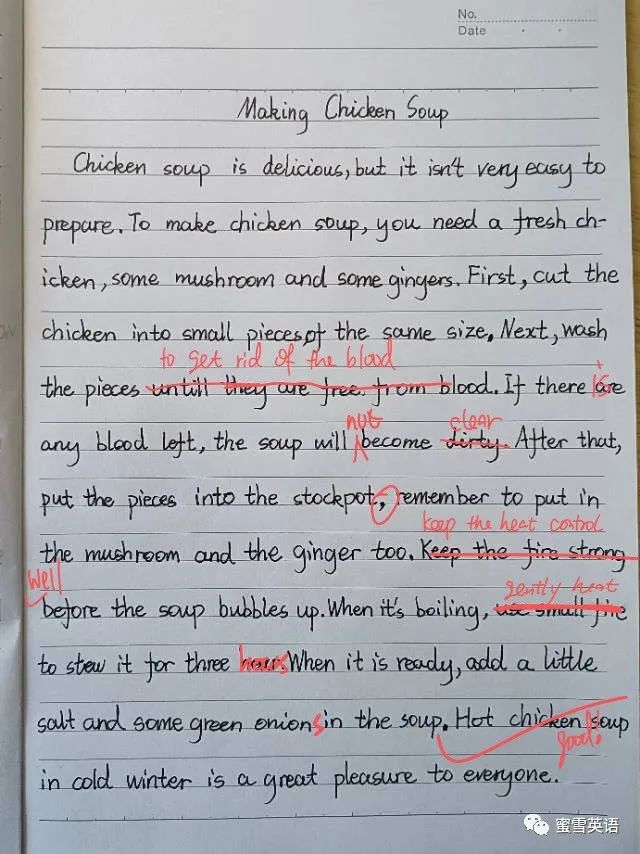 No.
Date
Making Chicken Soup
Chicken soup is delicious, but it isn't very easy to
prepare. To make chicken soup, you need a fresh ch-
icken, some mushroom and some gingers. First, cut the
chicken into small pieces of the same size. Next, wash
to get rid of the blood
the pieces untill they are free from blood. If there are
is
not clear
any blood left, the soup will become dirty. After that,
put the pieces into the stockpot, remember to put in
keep the heat control
the mushroom and the ginger too. Keep the fire strong
well
gently heat
before the soup bubbles up. When it's boiling, use small fire
to stew it for three hours. When it is ready, add a little
salt and some green onions in the soup. Hot chicken soup
good!
in cold winter is a great pleasure to everyone.
蜜雪英语